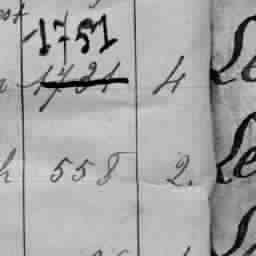 1751
1731 4 Le
h 558 2. Le